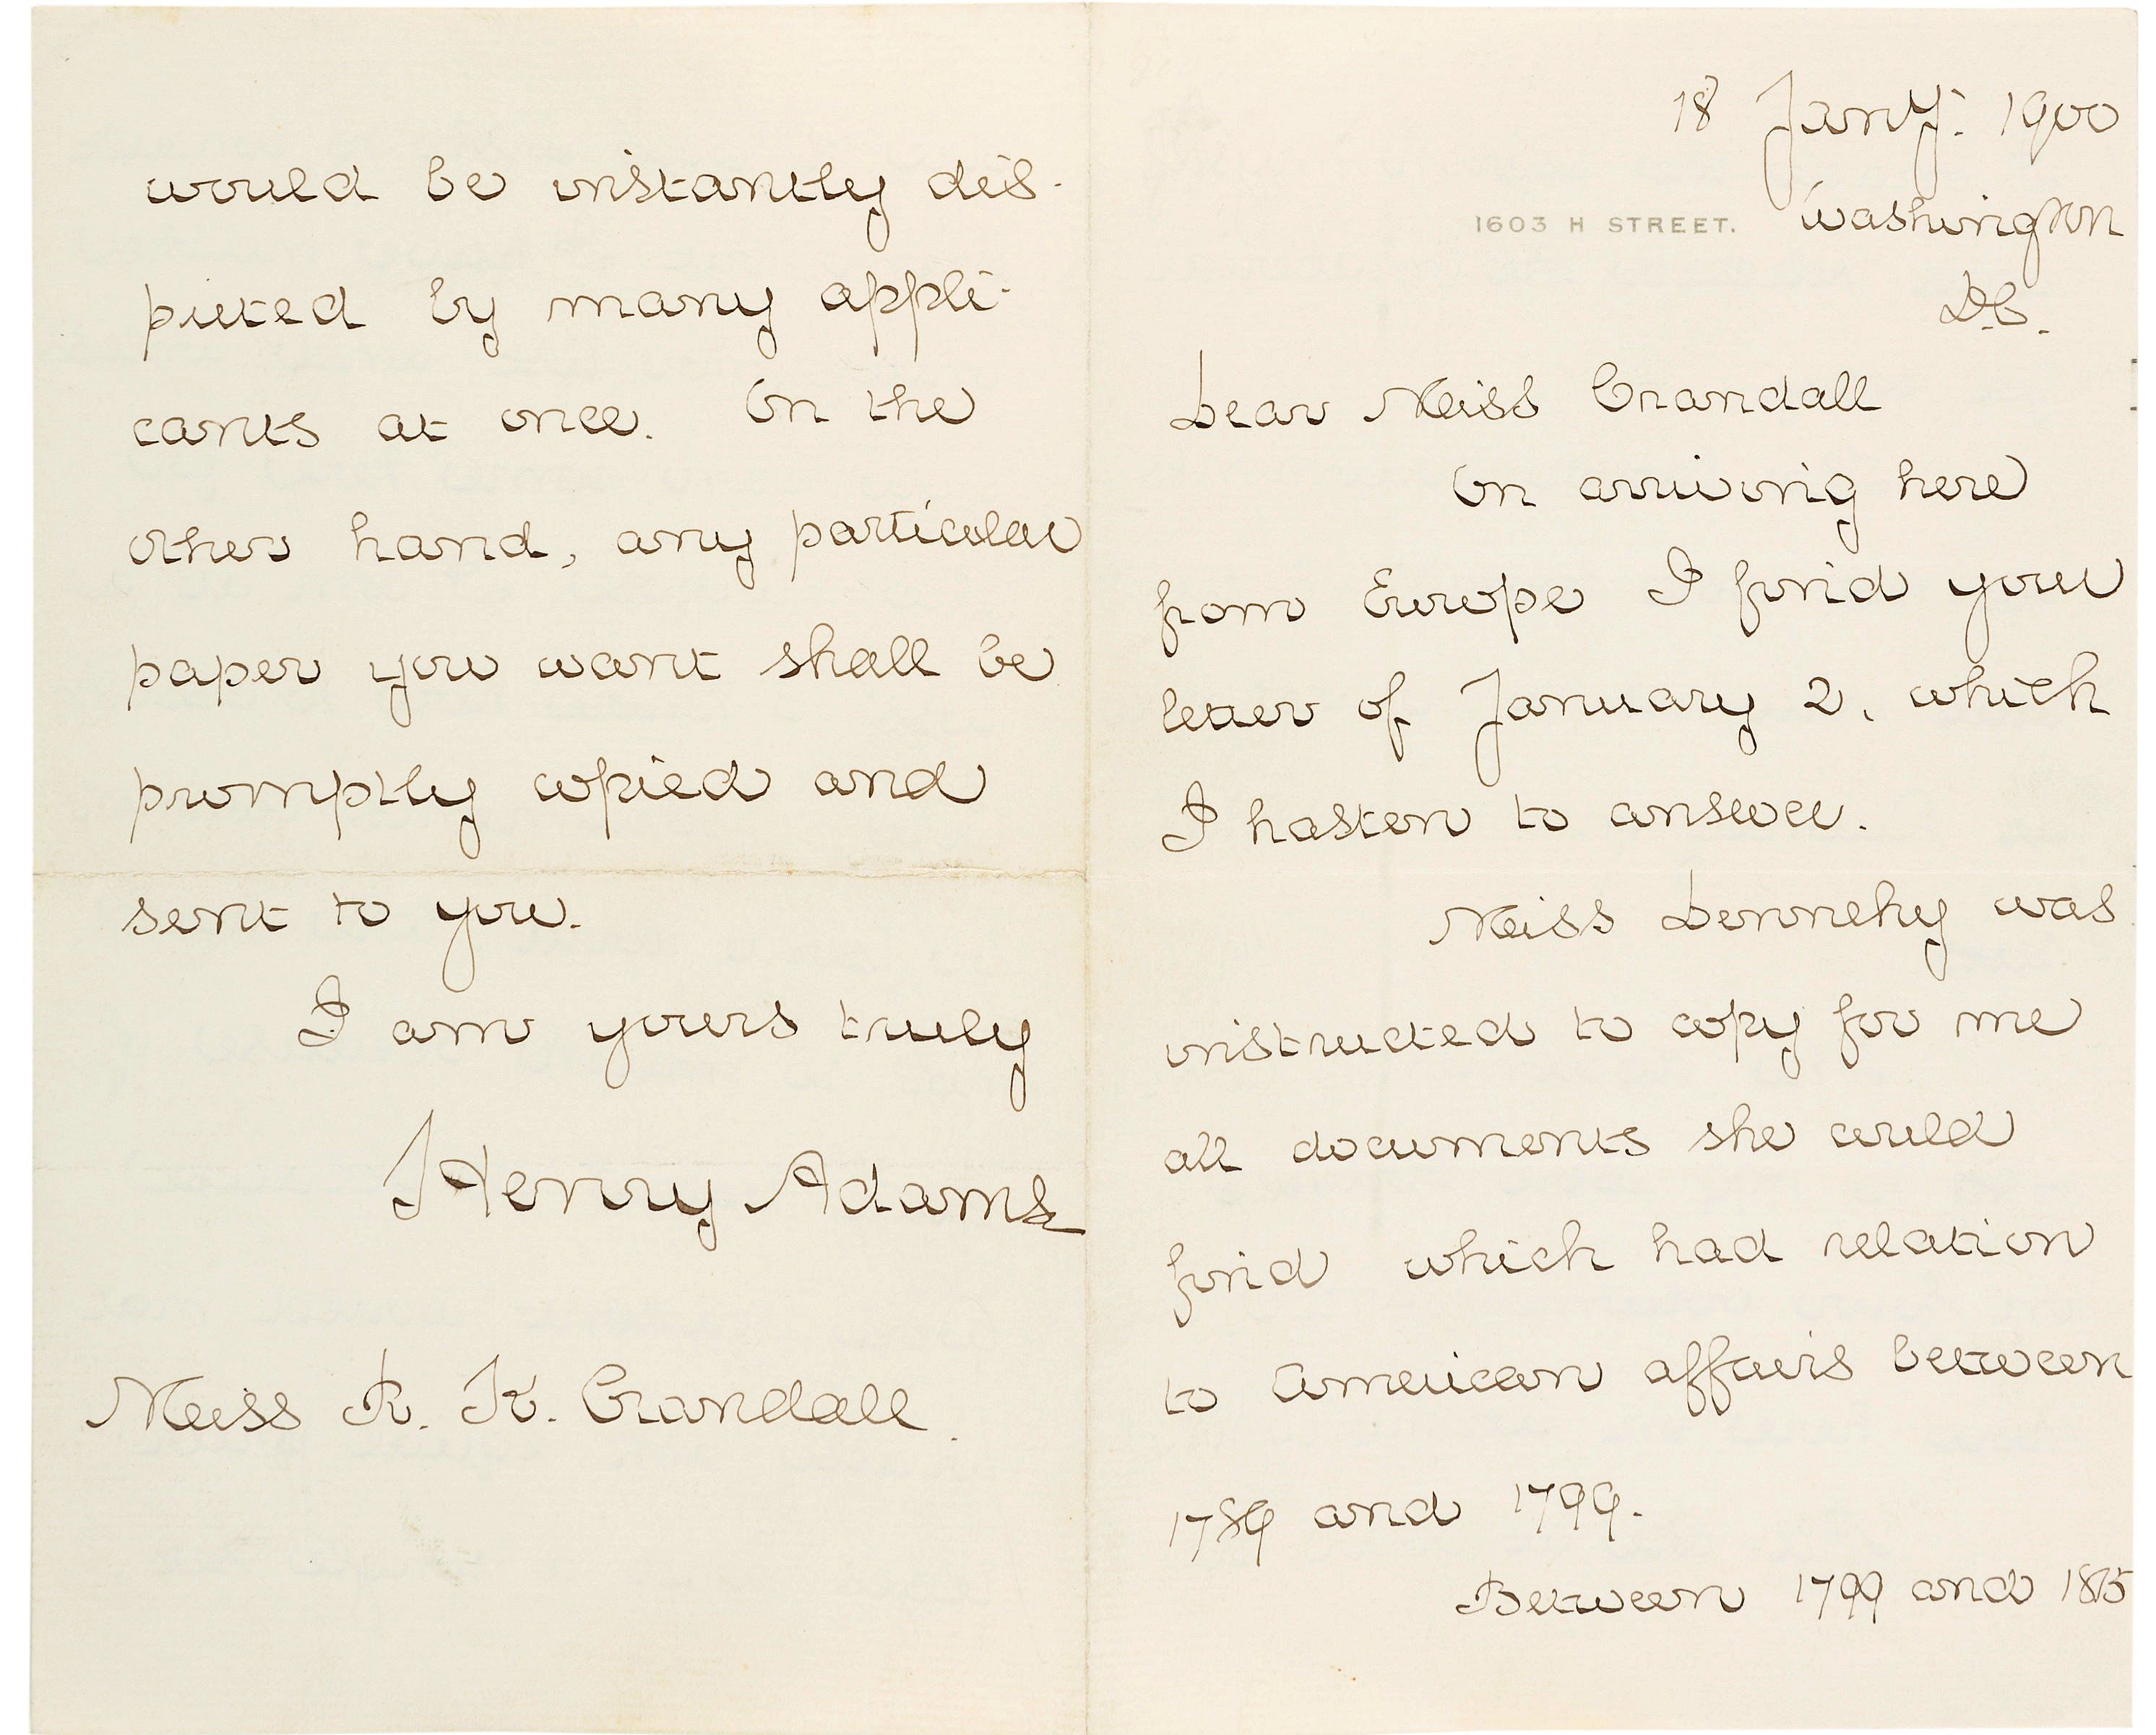 18 Jany. 1900
1603 H STREET. Washington
D.C.
Dear Miss Crandall
On arriving here
from Europe I find your
letter of January 2, which
I hasten to answer.
Miss Dennehy was
instructed to copy for me
all documents she could
find which had relation
to American affairs between
1789 and 1799.
Between 1799 and 1815
would be instantly dis-
puted by many appli-
cants at once. On the
other hand, any particular
paper you want shall be
promptly copied and
sent to you.
I am yours truly
Henry Adams
Miss R. K. Crandall.